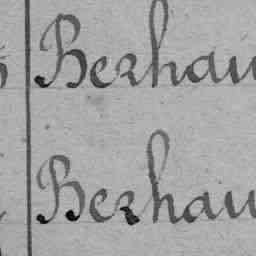 Berhau
Berhau